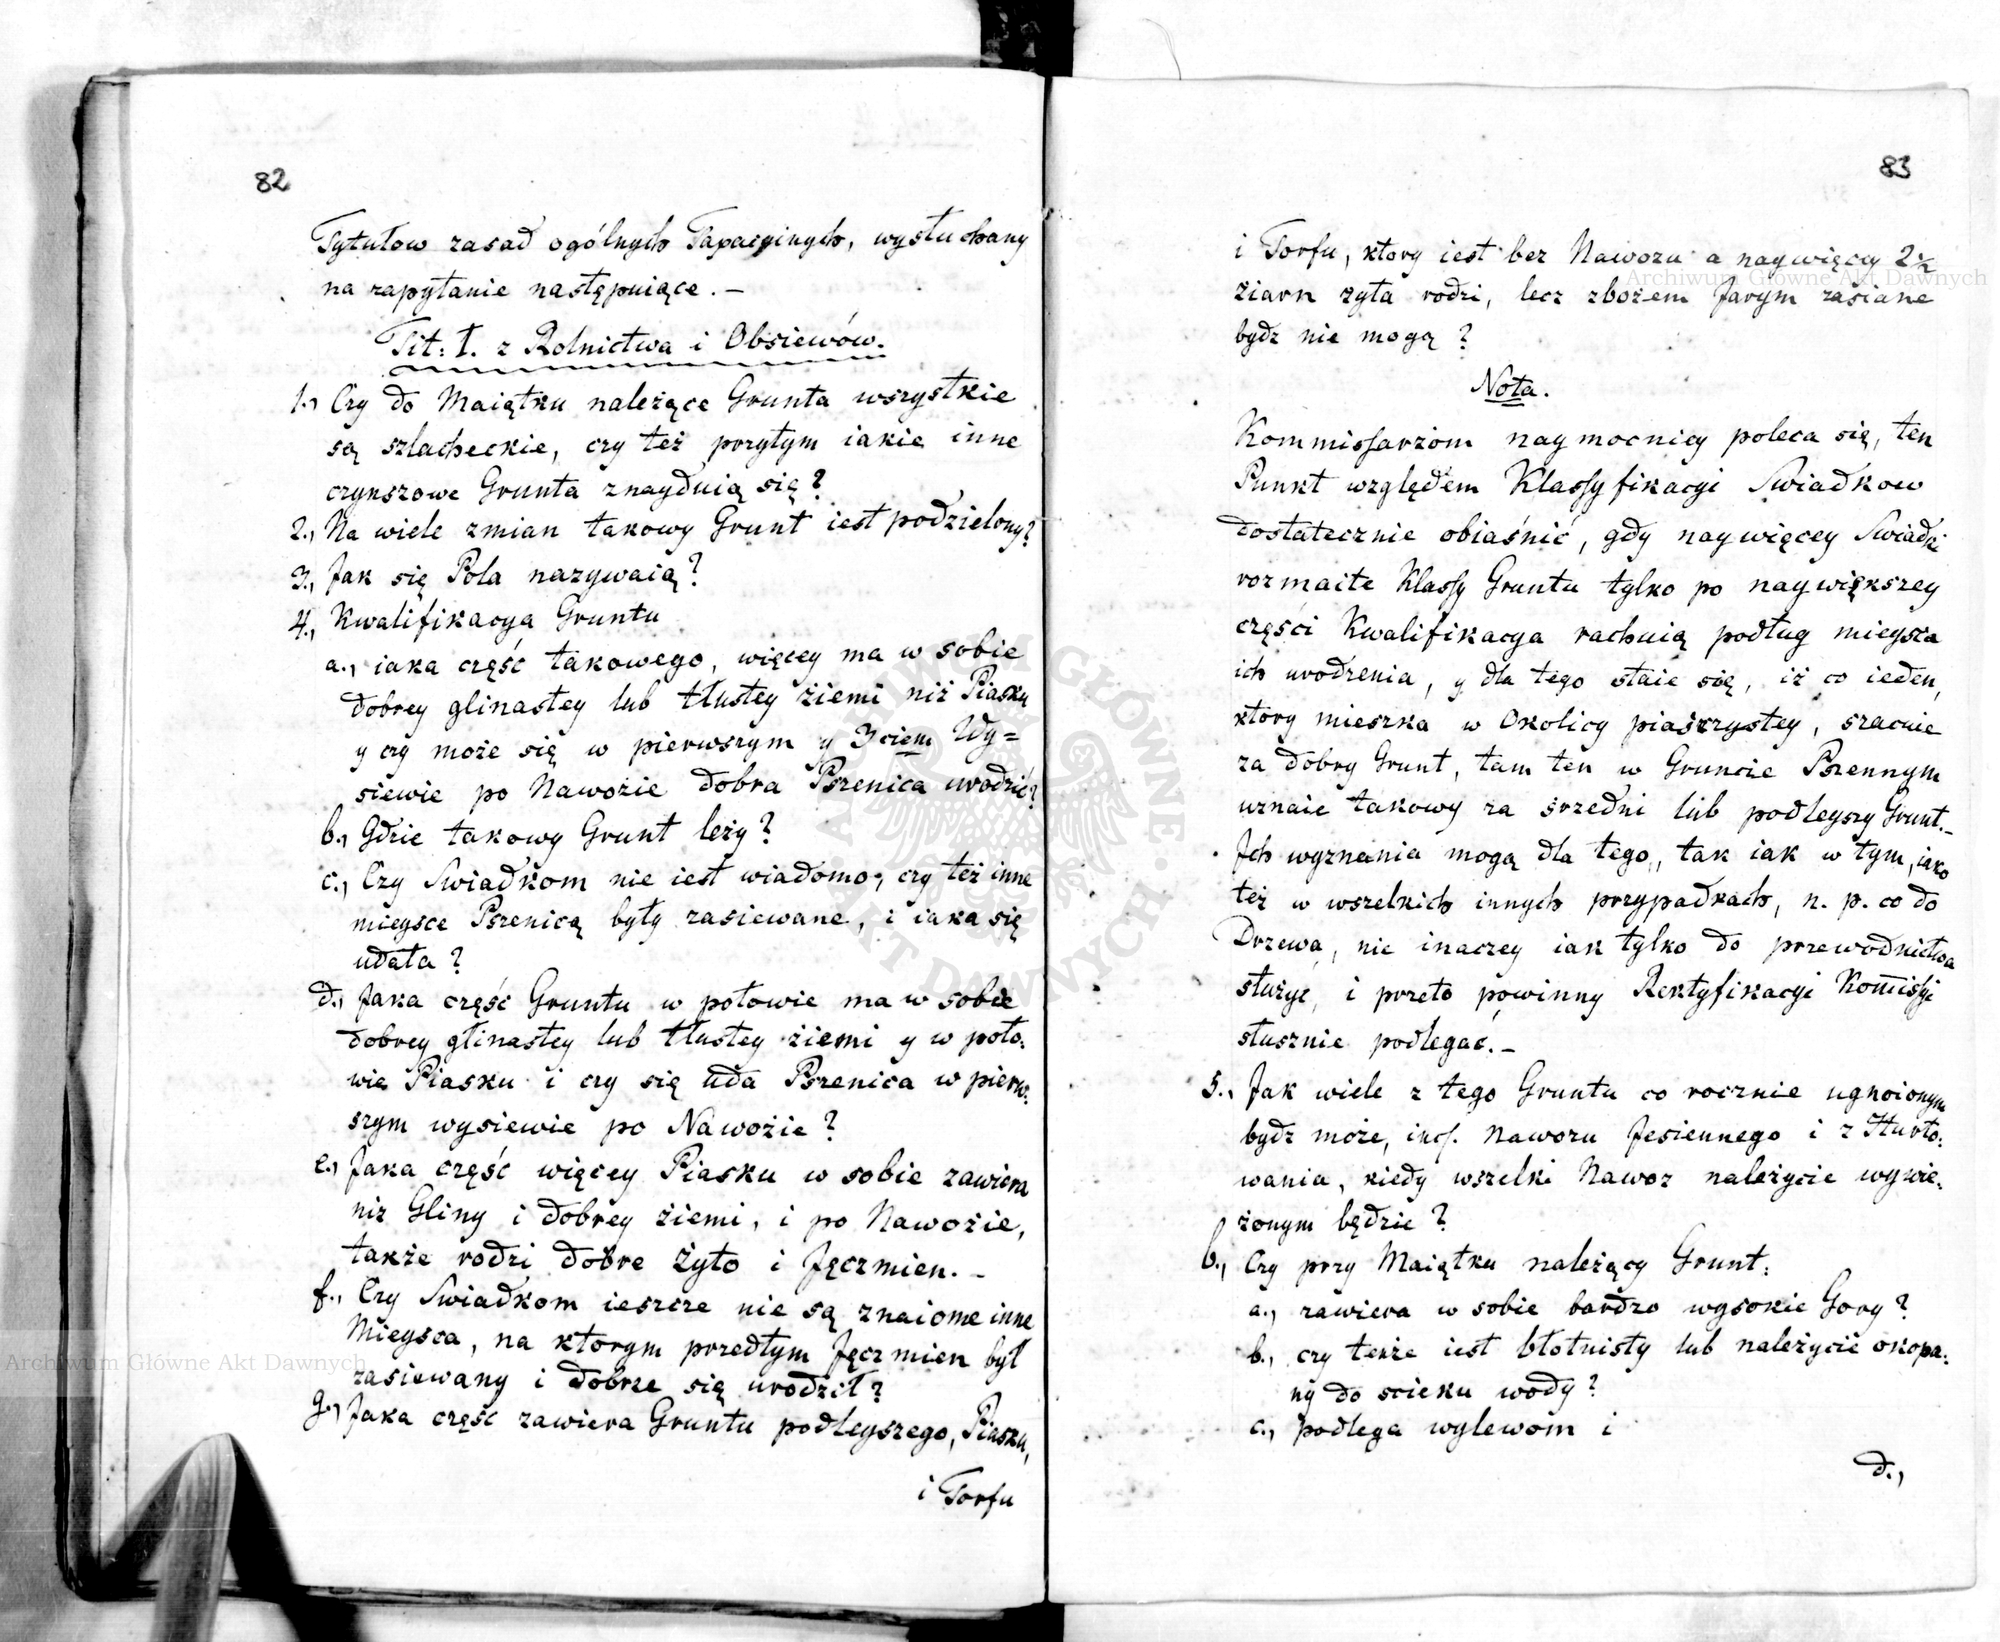 82
Tytułow zasad ogólnych Taxacyinych, wysłuchany
na zapytanie następuiące. –
Tit: 1. z Rolnictwa i Obsiewów.
1., Czy do Maiątku należące Grunta wszystkie
są szlacheckie, czy też przytym iakie inne
czynszowe Grunta znayduią się?
2., Na wiele zmian takowy Grunt iest podzielony?
3., Jak się Pola nazywaią?
4., Kwalifikacya Gruntu
a., iaka część takowego, więcey ma w sobie
dobrey glinastey lub tłustey ziemi niż Piasku
y czy może się w pierwszym y 3ciem Wy=
siewie po Nawozie dobra Pszenica urodzić?
b., Gdzie takowy Grunt leży?
c., Czy Swiadkom nie iest wiadomo, czy też inne
mieysce Pszenicą były zasiewane, i iaka się
udała?
d., Jaka część Gruntu w połowie ma w sobie
dobrey glinastey lub tłustey ziemi y w poło:
wie Piasku i czy się uda Pszenica w pierw:
szym wysiewie po Nawozie?
e., Jaka część więcey Piasku w sobie zawiera
niz Gliny i dobrey ziemi, i po Nawozie,
także rodzi dobre żyto i Jęczmien. –
f., Czy Swiadkom ieszcze nie są znaiome inne
Mieysca, na ktorym przedtym Jęczmien był
zasiewany i dobrze się urodził?
g., Jaka część zawiera Gruntu podleyszego, Piasku,
i Torfu
83
i Torfu, ktory iest bez Nawozu a naywięcy 2½
ziarn zyta rodzi, lecz zbożem Jarym zasiane
bydz nie mogą?
Nota.
Kommissarzom naymocnicy poleca się, ten
Punkt względem Klassyfikacyi Swiadkow
dostatecznie obiaśnić, gdy naywięcey Swiadki
rozmaite Klassy Gruntu tylko po naywiększey
części Kwalifikacya rachuią podług mieysca
ich urodzenia, y dla tego staie się, iż co ieden,
ktory mieszka w Okolicy piaszczystey, szacuie
za dobry Grunt, tam ten w Gruncie Pszennym
uznaie takowy za srzedni lub podleyszy Grunt. –
Jch wyznania mogą dla tego, tak iak w tym, iako
też w wszelkich innych przypadkach, n. p. co do
Drzewa, nie inaczey iak tylko do przewodnictwa
służyć, i przeto powinny Rektyfikacyi Komissyi
słusznie podlegać. –
5., Jak wiele z tego Gruntu co rocznie ugnoionym
bydz może, incl. Nawozu Jesiennego i z Hurto:
wania, kiedy wszelki Nawoz należycie wywie:
zonym będzie?
6., Czy przy Maiątku należący Grunt:
a., zawiera w sobie bardzo wysokie Gory?
b., czy tenże iest błotnisty lub należycie okopa:
ny do scieku wody?
c., podlega wylewom i
d.,
Archiwum Główne Akt Dawnych
Archiwum Główne Akt Dawnych
ARCHIWUM GŁÓWNE AKT DAWNYCH